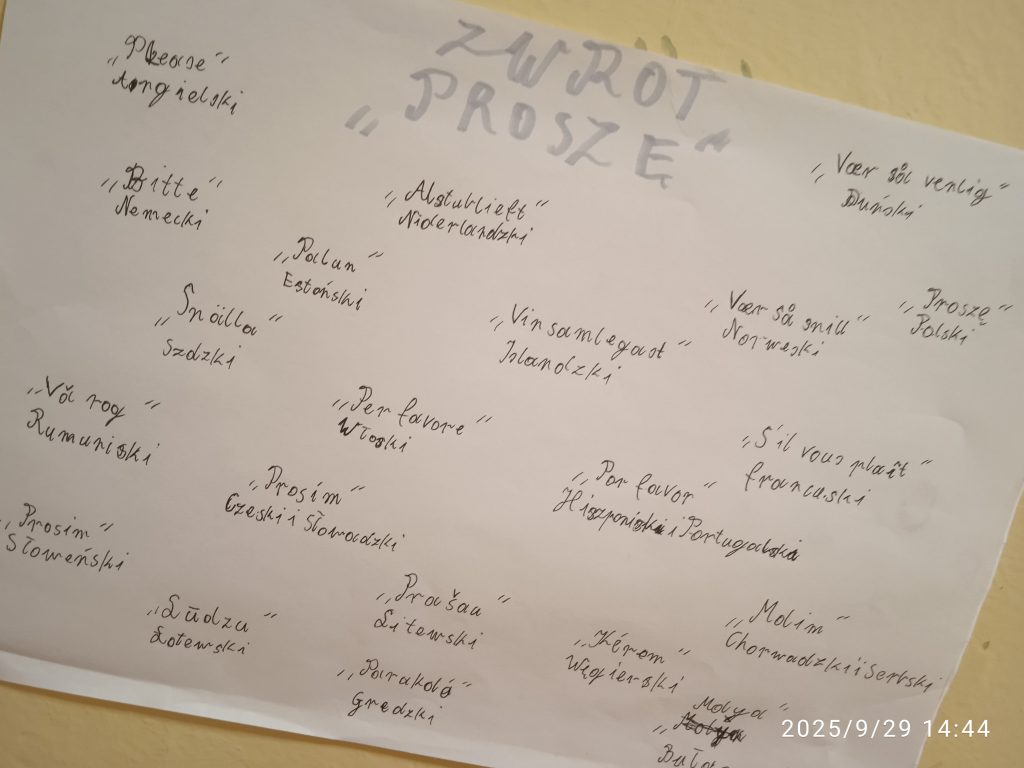 ZWROT
„PROSZĘ”
„Please”
Angielski
„Vær så venlig”
Duński
„Bitte”
Nemecki
„Alstublieft”
Niderlandzki
„Palun”
Estoński
„Vær så snill”
Norweski
„Proszę”
Polski
„Snäilla”
Szdzki
„Vinsamlegast”
Islandzki
„Vă rog”
Rumuński
„Per favore”
Włoski
„S'il vous plaît”
francuski
„Prosím”
Czeski i Słowadzki
„Por favor”
Hiszpański i Portugalski
„Prosim”
Słoweński
„Lūdzu”
Łotewski
„Prašau”
Litewski
„Kérem”
Węgierski
„Molim”
Chorwadzki i Serbski
„Parakaló”
Gredzki
„Molya”
2025/9/29 14:44